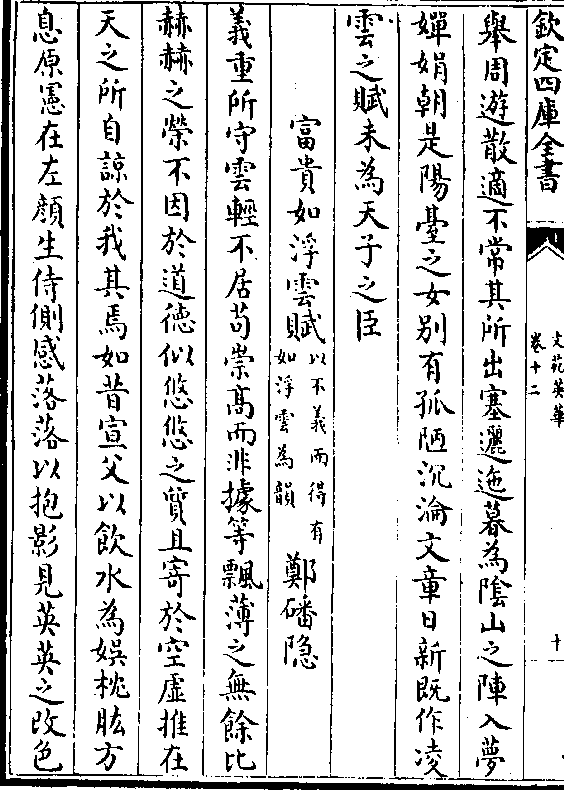 欽定四庫全書
文苑英華
卷十二
十
舉周遊散適不常其所出塞邐迤暮為陰山之陣入夢
嬋娟朝是陽臺之女别有孤陋沉淪文章日新既作凌
雲之賦未為天子之臣
富貴如浮雲賦以不義而得有如浮雲為韻鄭磻隐
義重所守雲輕不居苟崇髙而非據等飄薄之無餘比
赫赫之榮不因於道德似悠悠之質且寄於空虚推在
天之所自諒於我其焉如昔宣父以飲水為娱枕肱方
息原憲在左顔生侍側感落落以抱影見英英之改色